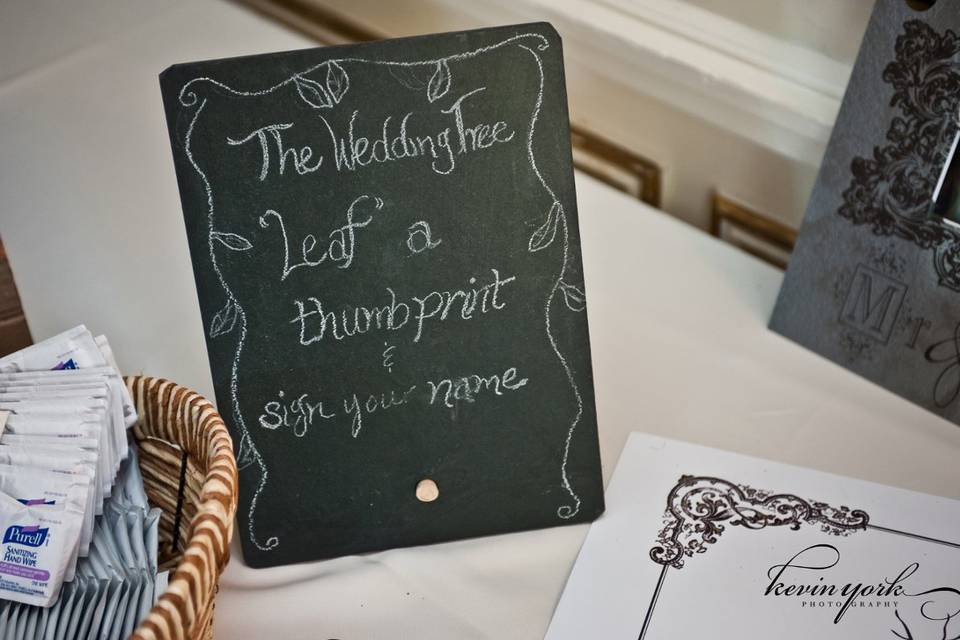 The Wedding Tree
"Leaf" a
thumbprint
&
sign your name
Purell
SANITIZING
HAND WIPE
M
Mr
kevin york
PHOTOGRAPHY